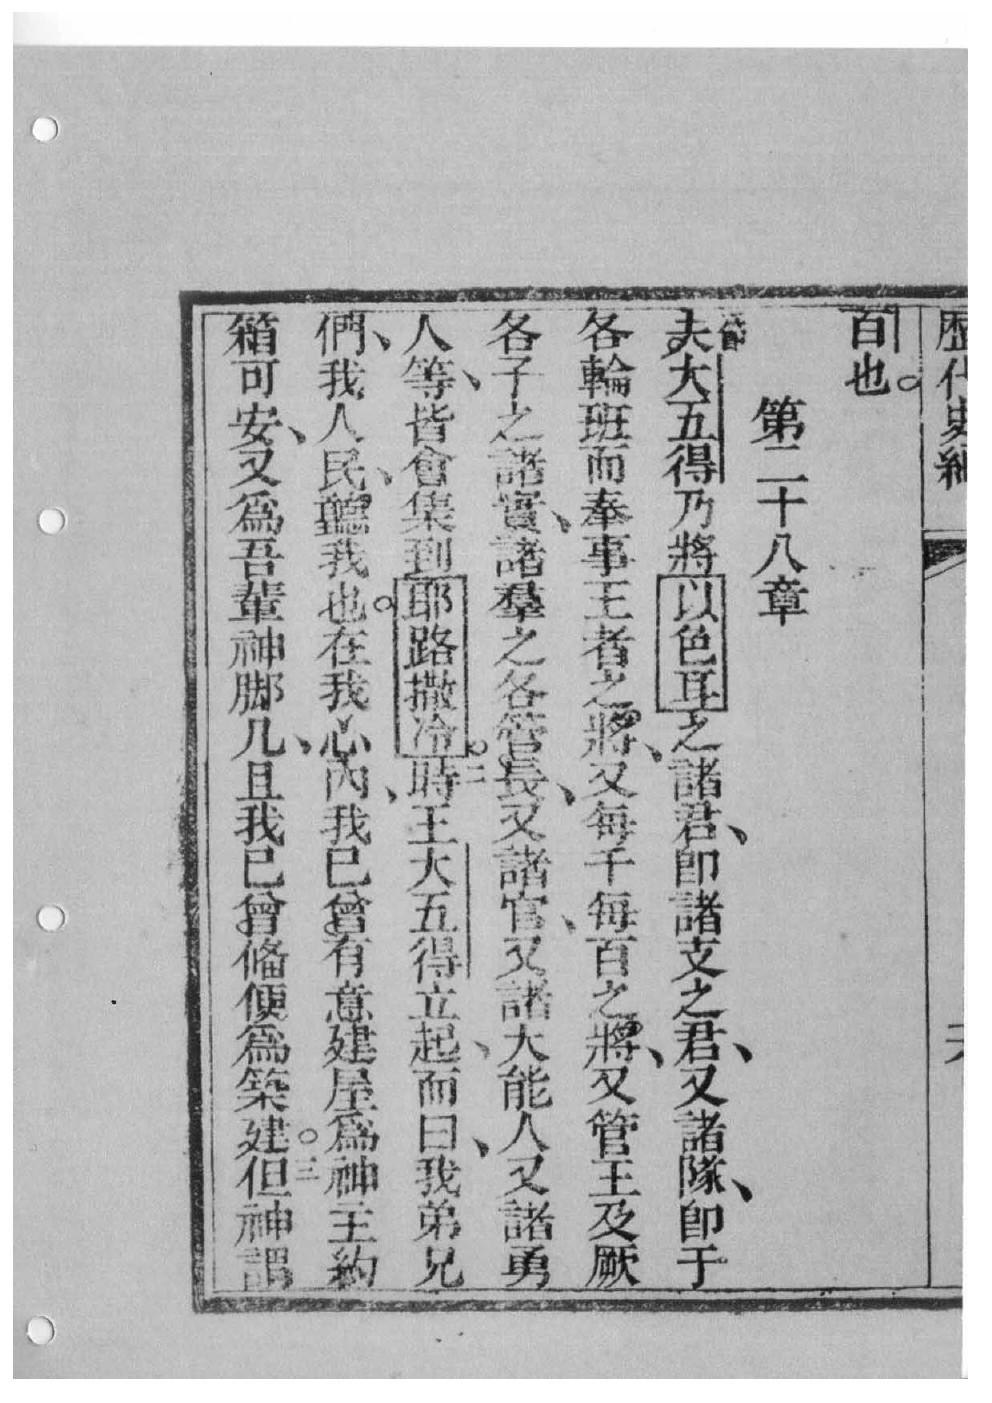 歷代史紀
百也。
第二十八章
夫大五得乃將以色耳之諸君、即諸支之君、又諸隊、即于
各輪班而奉事王者之將、又每千每百之將、又管王及厥
各子之諸實、諸羣之各管長、又諸官、又諸大能人又諸勇
人等、皆會集到耶路撒冷。二時王大五得立起、而曰、我弟兄
們、我人民、聽我也。在我心內、我已曾有意建屋爲神主約
箱可安、又爲吾輩神脚几、且我已曾俻便爲築建。三但神謂